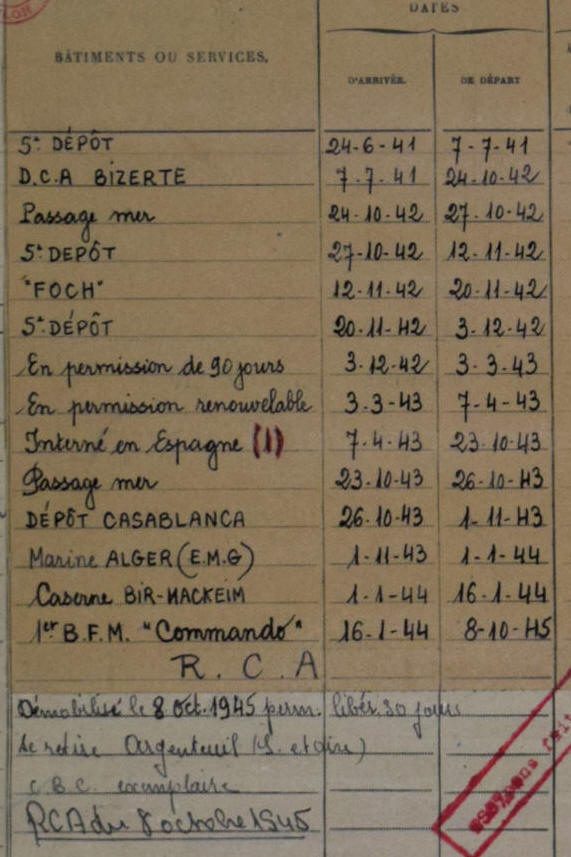 DATES
BÂTIMENTS OU SERVICES.
D'ARRIVÉE. DE DÉPART
5e DÉPÔT 24-6-41 7-7-41
D.C.A BIZERTE 7.7.41 24-10-42
Passage mer 24-10-42 27-10-42
5e DEPÔT 27-10-42 12-11-42
"FOCH" 12-11-42 20-11-42
5e DÉPÔT 20-11-42 3-12-42
En permission de 90 jours 3-12-42 3-3-43
En permission renouvelable 3.3-43 7-4-43
Interné en Espagne (1) 7.4-43 23.10-43
Passage mer 23.10-43 26-10-43
DÉPÔT CASABLANCA 26.10-43 1-11-43
Marine ALGER (E.M.G) 1-11-43 1-1-44
Caserne BIR-HACKEIM 1-1-44 16-1-44
1er B.F.M. "Commando" 16-1-44 8-10-45
R.C.A
Démobilisé le 8 Oct. 1945 perm. libér. 30 jours
Se retire Argenteuil (S. et Oise)
C.B.C. exemplaire
RCA du 8 octobre 1945